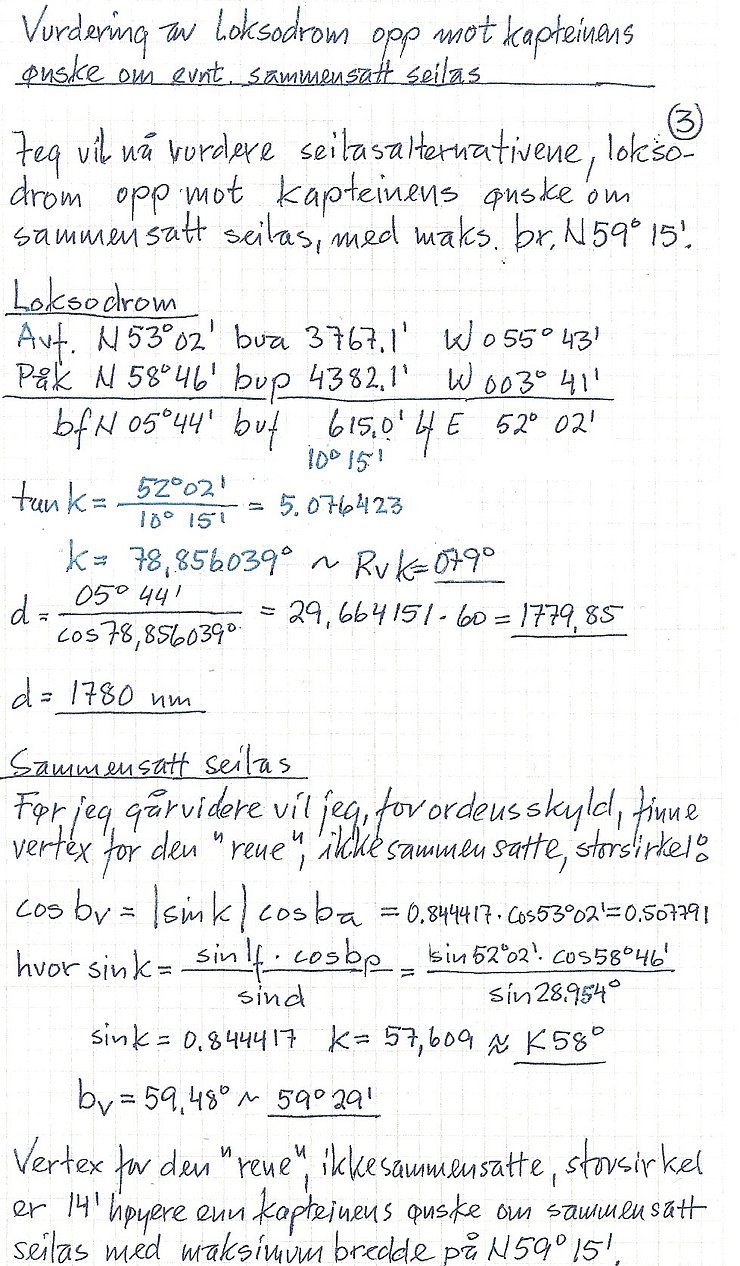 Vurdering av Loksodrom opp mot kapteinens
ønske om evnt. sammensatt seilas
③
Jeg vil nå vurdere seilasalternativene, lokso-
drom opp mot kapteinens ønske om
sammensatt seilas, med maks. br. N 59° 15'.
Loksodrom
Avf. N 53° 02' bva 3767,1' W 055° 43'
Påk N 58° 46' bvp 4382,1' W 003° 41'
bf N 05° 44' bvf 615,0' lf E 52° 02'
10° 15'
tan k = 52° 02' / 10° 15' = 5.076423
k = 78,856039° ~ Rvk = 079°
d = 05° 44' / cos 78,856039° = 29,664151 · 60 = 1779,85
d = 1780 nm
Sammensatt seilas
Før jeg går videre vil jeg, for ordens skyld, finne
vertex for den "rene", ikke sammensatte, storsirkel:
cos bv = |sin k| cos ba = 0.844417 · cos 53° 02' = 0.507791
hvor sin k = sin lf · cos bp / sin d = sin 52° 02' · cos 58° 46' / sin 28.954°
sin k = 0.844417 k = 57,609 ≈ K 58°
bv = 59,48° ~ 59° 29'
Vertex for den "rene", ikke sammensatte, storsirkel
er 14' høyere enn kapteinens ønske om sammensatt
seilas med maksimum bredde på N 59° 15'.